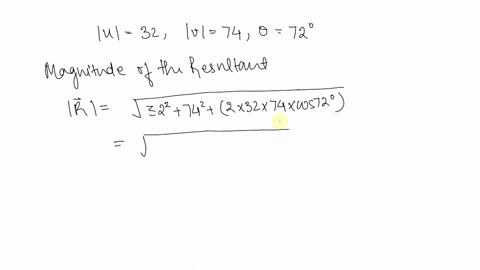 |u| = 32, |v| = 74, θ = 72°
Magnitude of the Resultant
|R⃗| = √32² + 74² + (2×32×74×cos72°)
= √